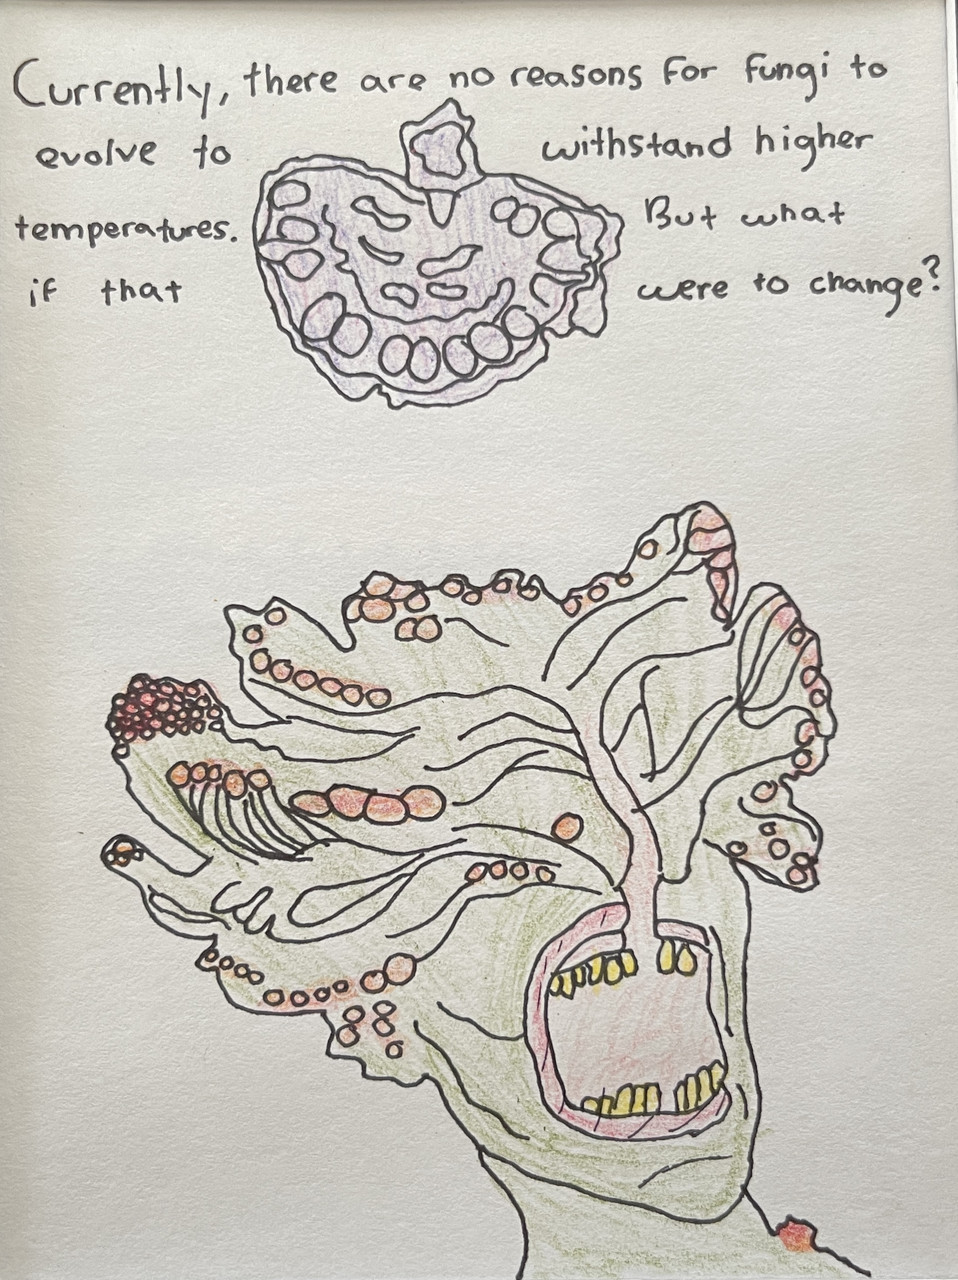 Currently, there are no reasons for fungi to
evolve to withstand higher
temperatures. But what
if that were to change?